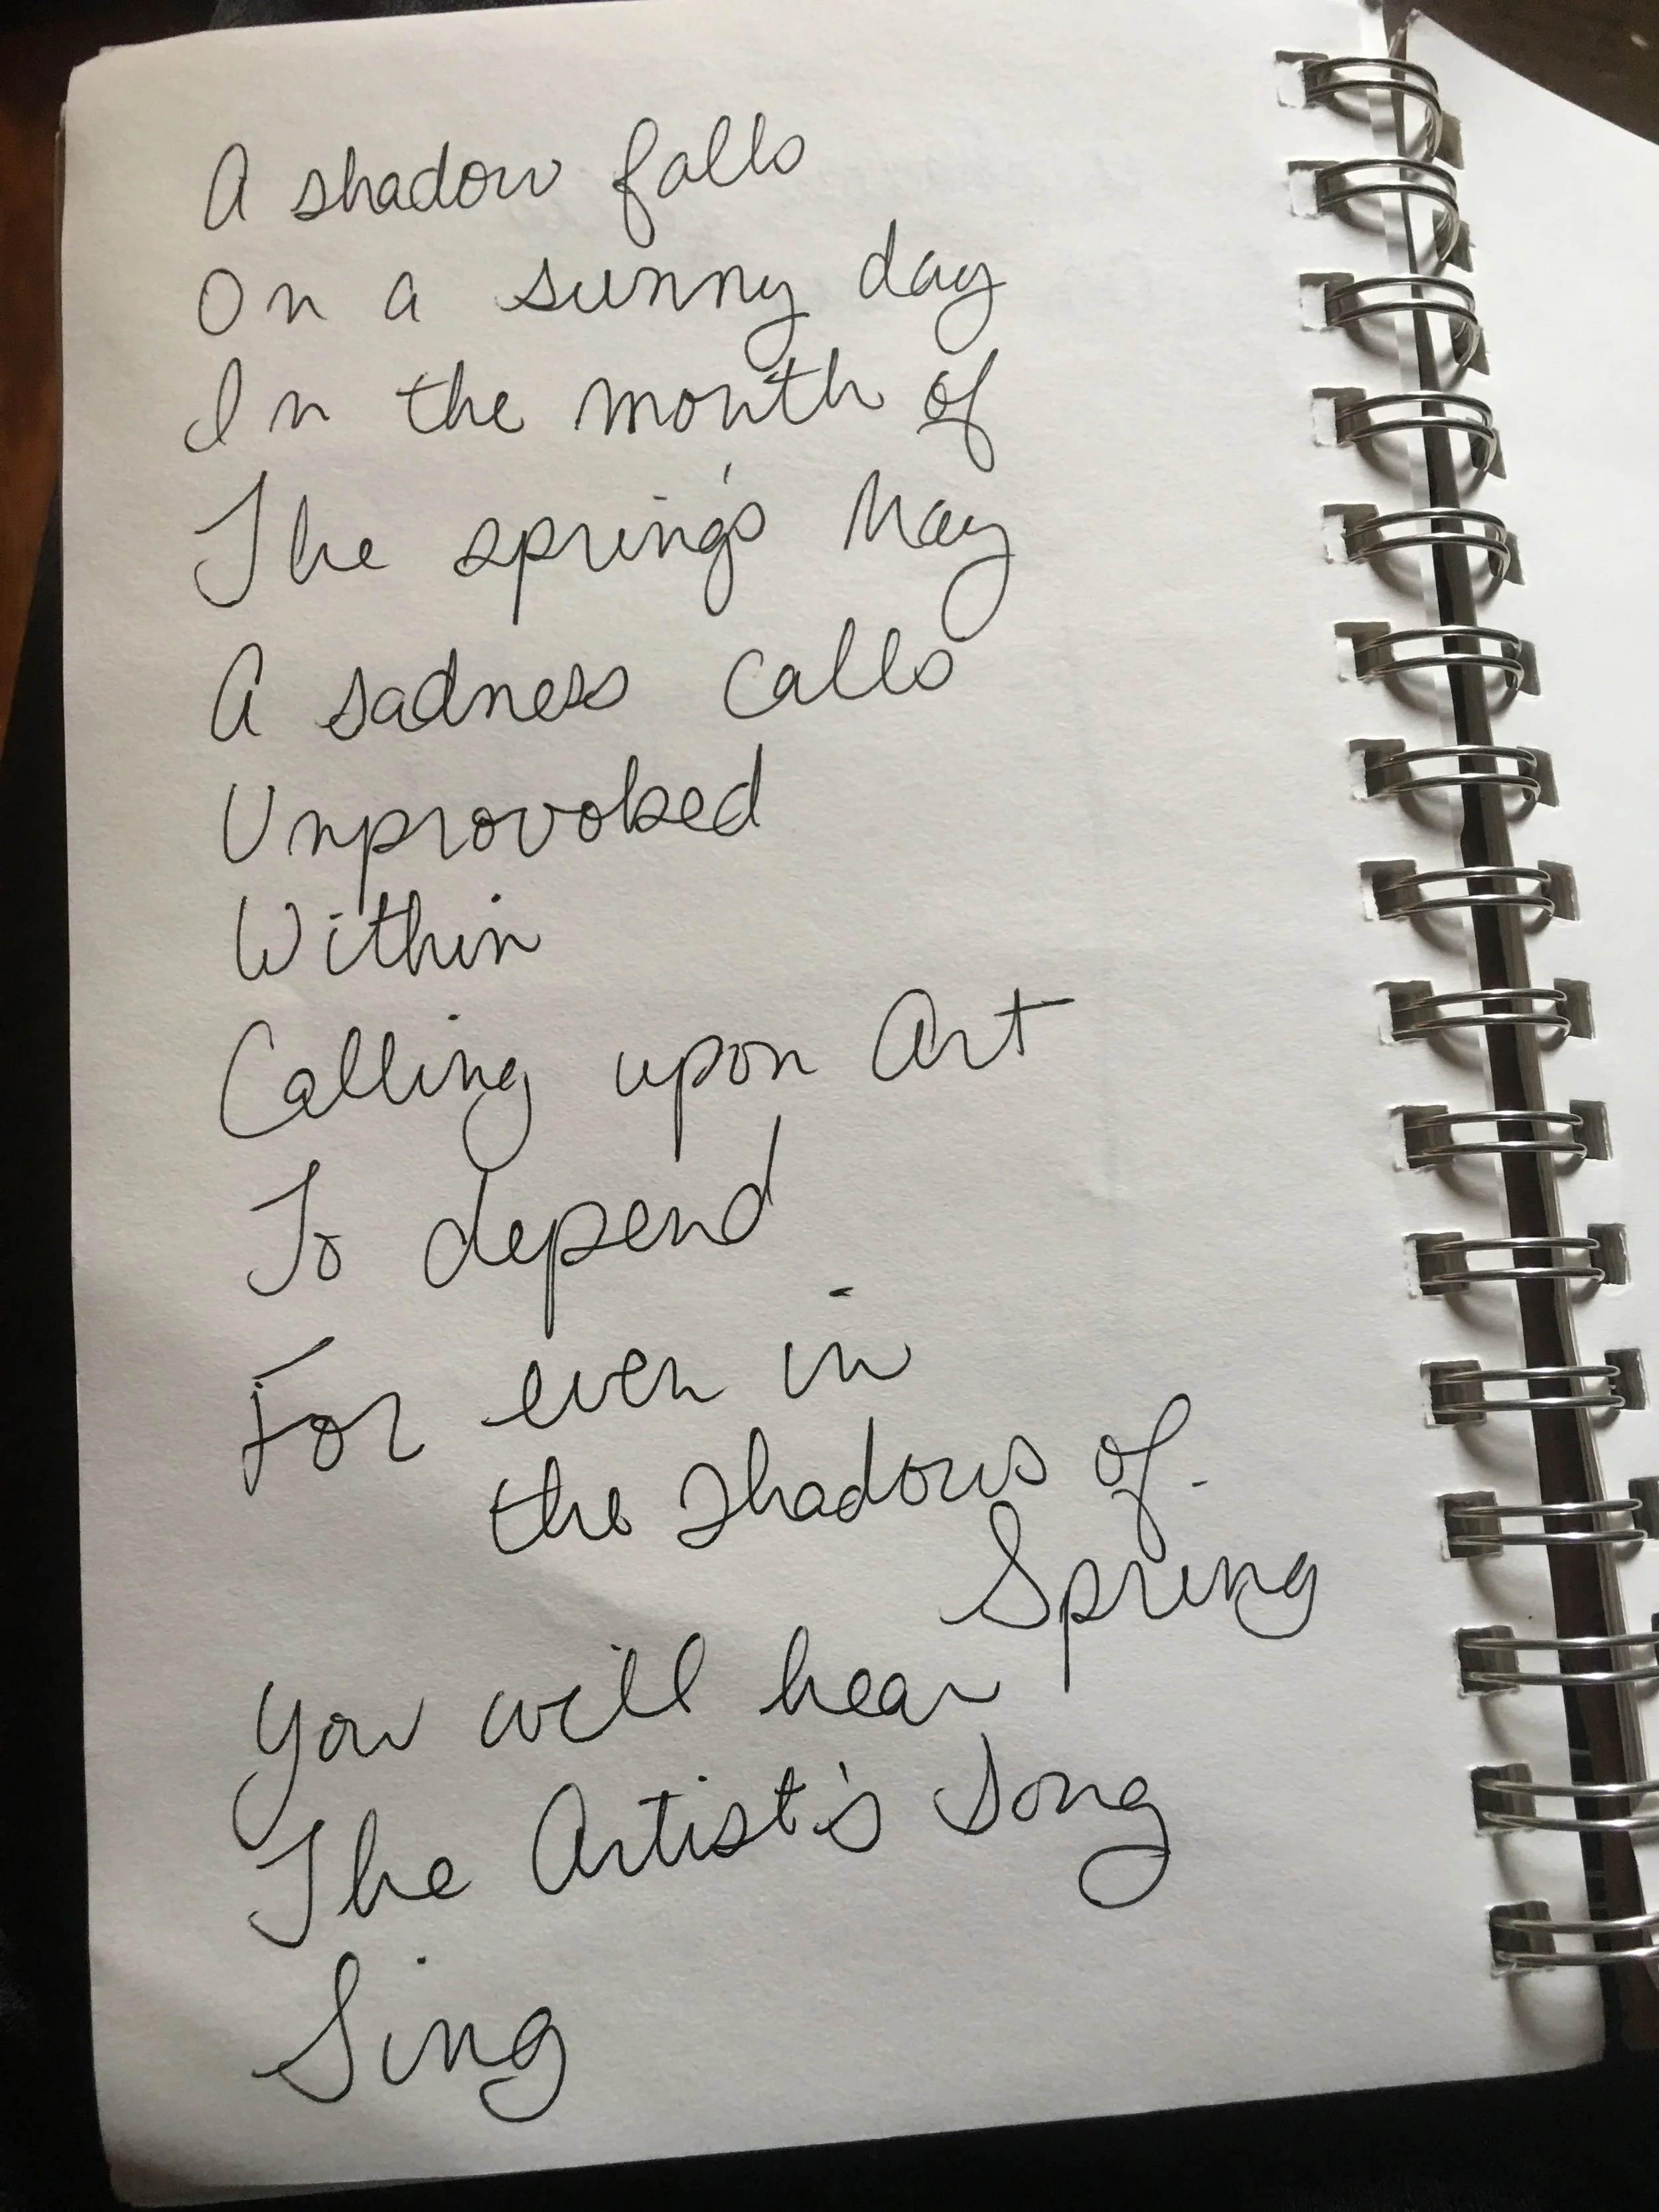 A shadow falls
On a sunny day
In the month of
The spring's May
A sadness calls
Unprovoked
Within
Calling upon Art
To depend
For even in
the shadows of
Spring
You will hear
The Artist's Song
Sing